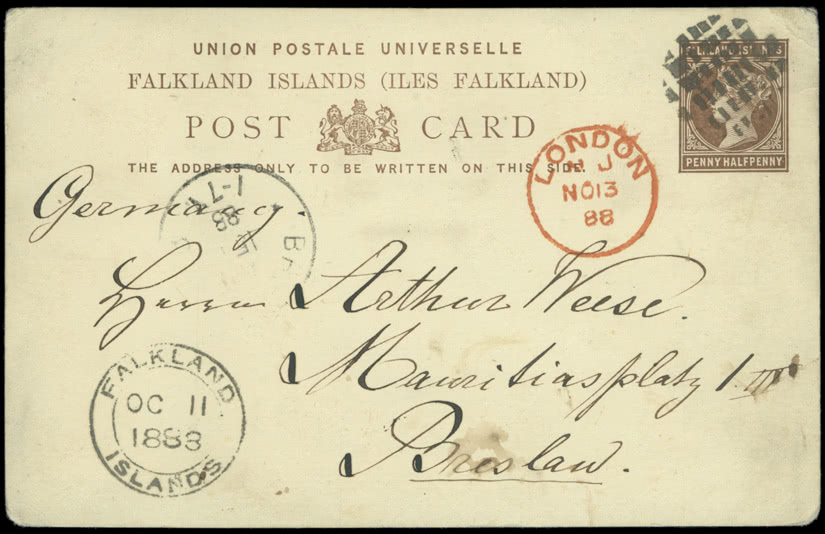 UNION POSTALE UNIVERSELLE
FALKLAND ISLANDS (ILES FALKLAND)
POST CARD
THE ADDRESS ONLY TO BE WRITTEN ON THIS SIDE.
FALKLAND ISLANDS
PENNY HALFPENNY
LONDON
NO 13
88
Germany.
Herrn Arthur Weese.
Mauritiusplatz 1 III
Breslau.
FALKLAND
OC 11
1888
ISLANDS